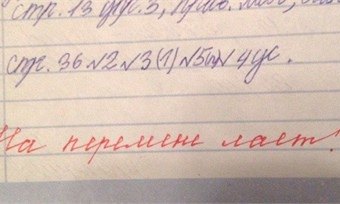 стр. 13 упр. 3,
стр. 36 №2 №3(1) №5(а) 4 ус.
На перемене лает!